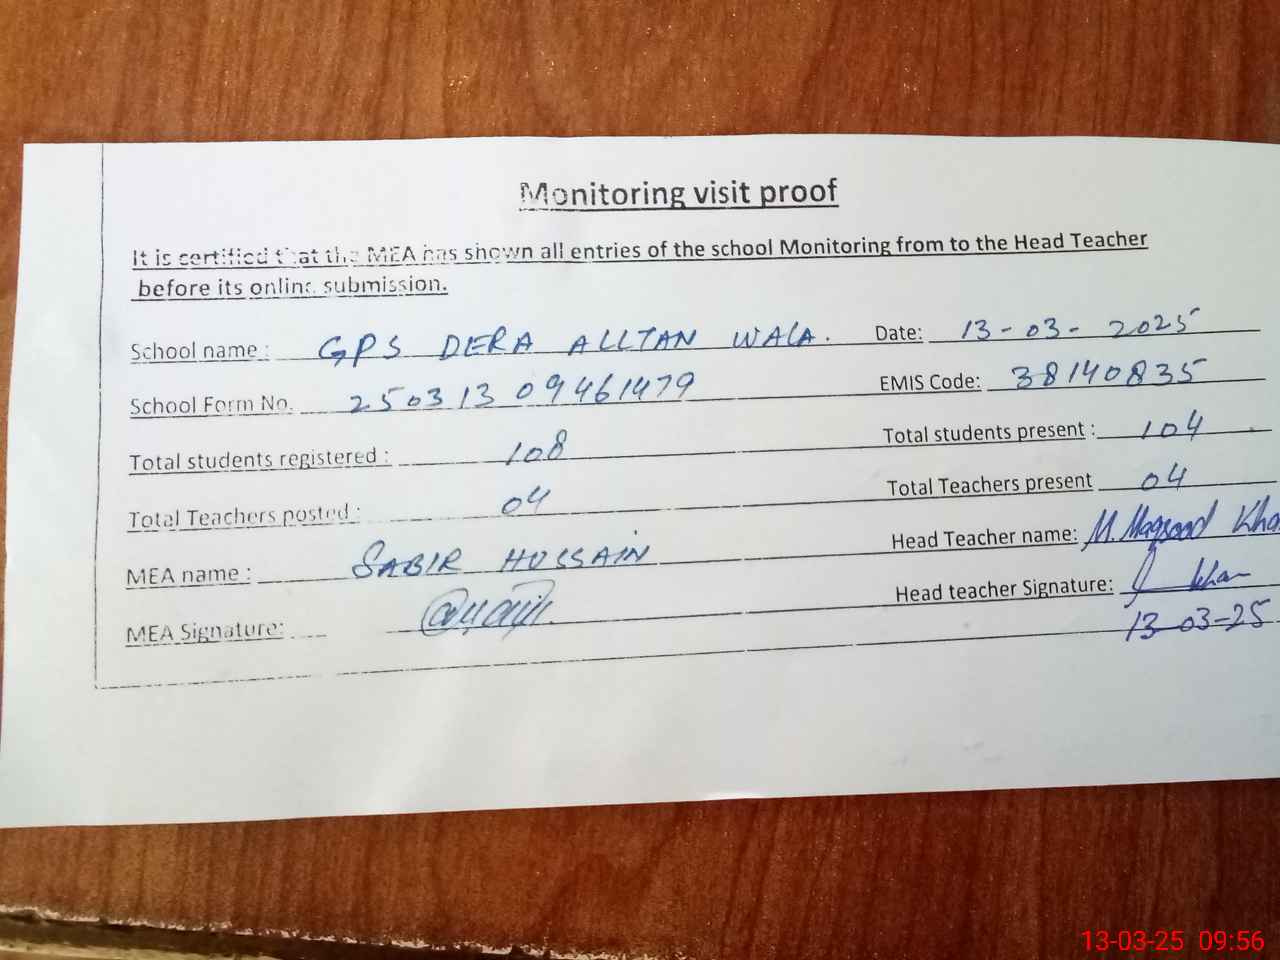 Monitoring visit proof
It is certified that the MEA has shown all entries of the school Monitoring from to the Head Teacher
before its online submission.
School name : GPS DERA ALLTAN WALA. Date: 13-03-2025
School Form No. 250313 09461479 EMIS Code: 38140835
Total students registered : 108 Total students present : 104
Total Teachers posted : 04 Total Teachers present 04
MEA name : SABIR HUSSAIN Head Teacher name: M. Maqsood Kha
MEA Signature: Head teacher Signature: khan
13-03-25
13-03-25 09:56